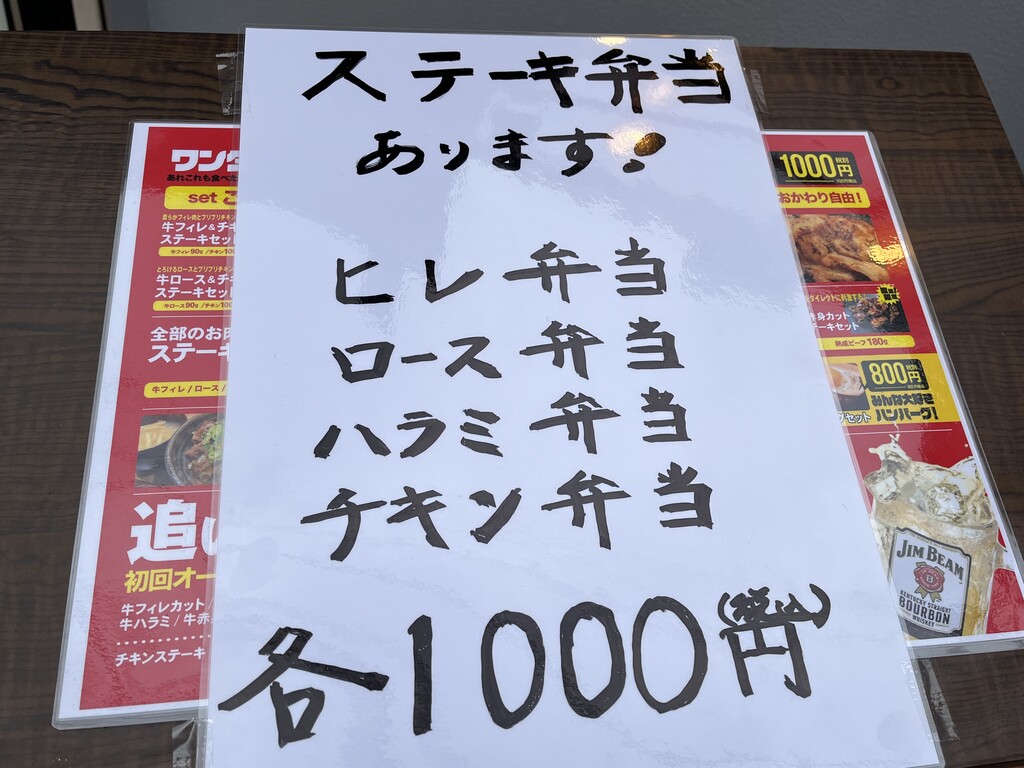 ステーキ弁当
あります!
ヒレ弁当
ロース弁当
ハラミ弁当
チキン弁当
各1000円(税込)
ワン
あれこれも食べた
set
柔らかフィレ肉とプリプリチキン
牛フィレ&チキ
ステーキセット
牛フィレ90g/チキン100
とろけるロースとプリプリチキン
牛ロース&チキ
ステーキセット
牛ロース90g/チキン100
全部のお肉
ステーキ
牛フィレ/ロース/
追い
初回オー
牛フィレカット/
牛ハラミ/牛赤
チキンステーキ
1000円
税別
おかわり自由!
ダイレクトに刺激する!
身カット
ーキセット
熟成ビーフ180g
800円
税別
みんな大好き
ハンバーグ!
セット
JIM BEAM
KENTUCKY STRAIGHT
BOURBON
WHISKEY